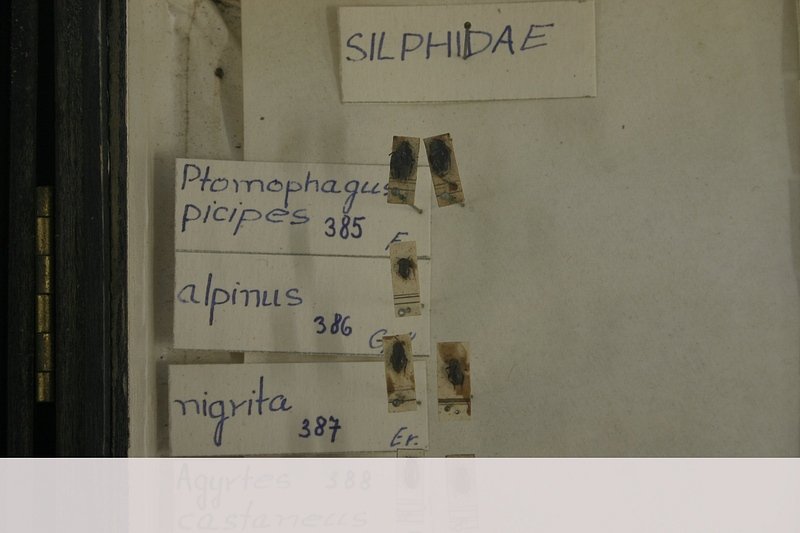 SILPHIDAE
Ptomophagus
picipes 385
F.
alpinus
386
nigrita
387 Er.
Agyrtes 388
castaneus